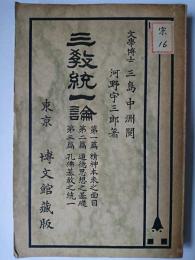 宗
16
文學博士 三島中洲閲
河野宇三郎著
三教統一論
第一篇 精神本來之面目
第二篇 道德思想之基礎
第三篇 孔佛基教之統一
東京 博文館藏版